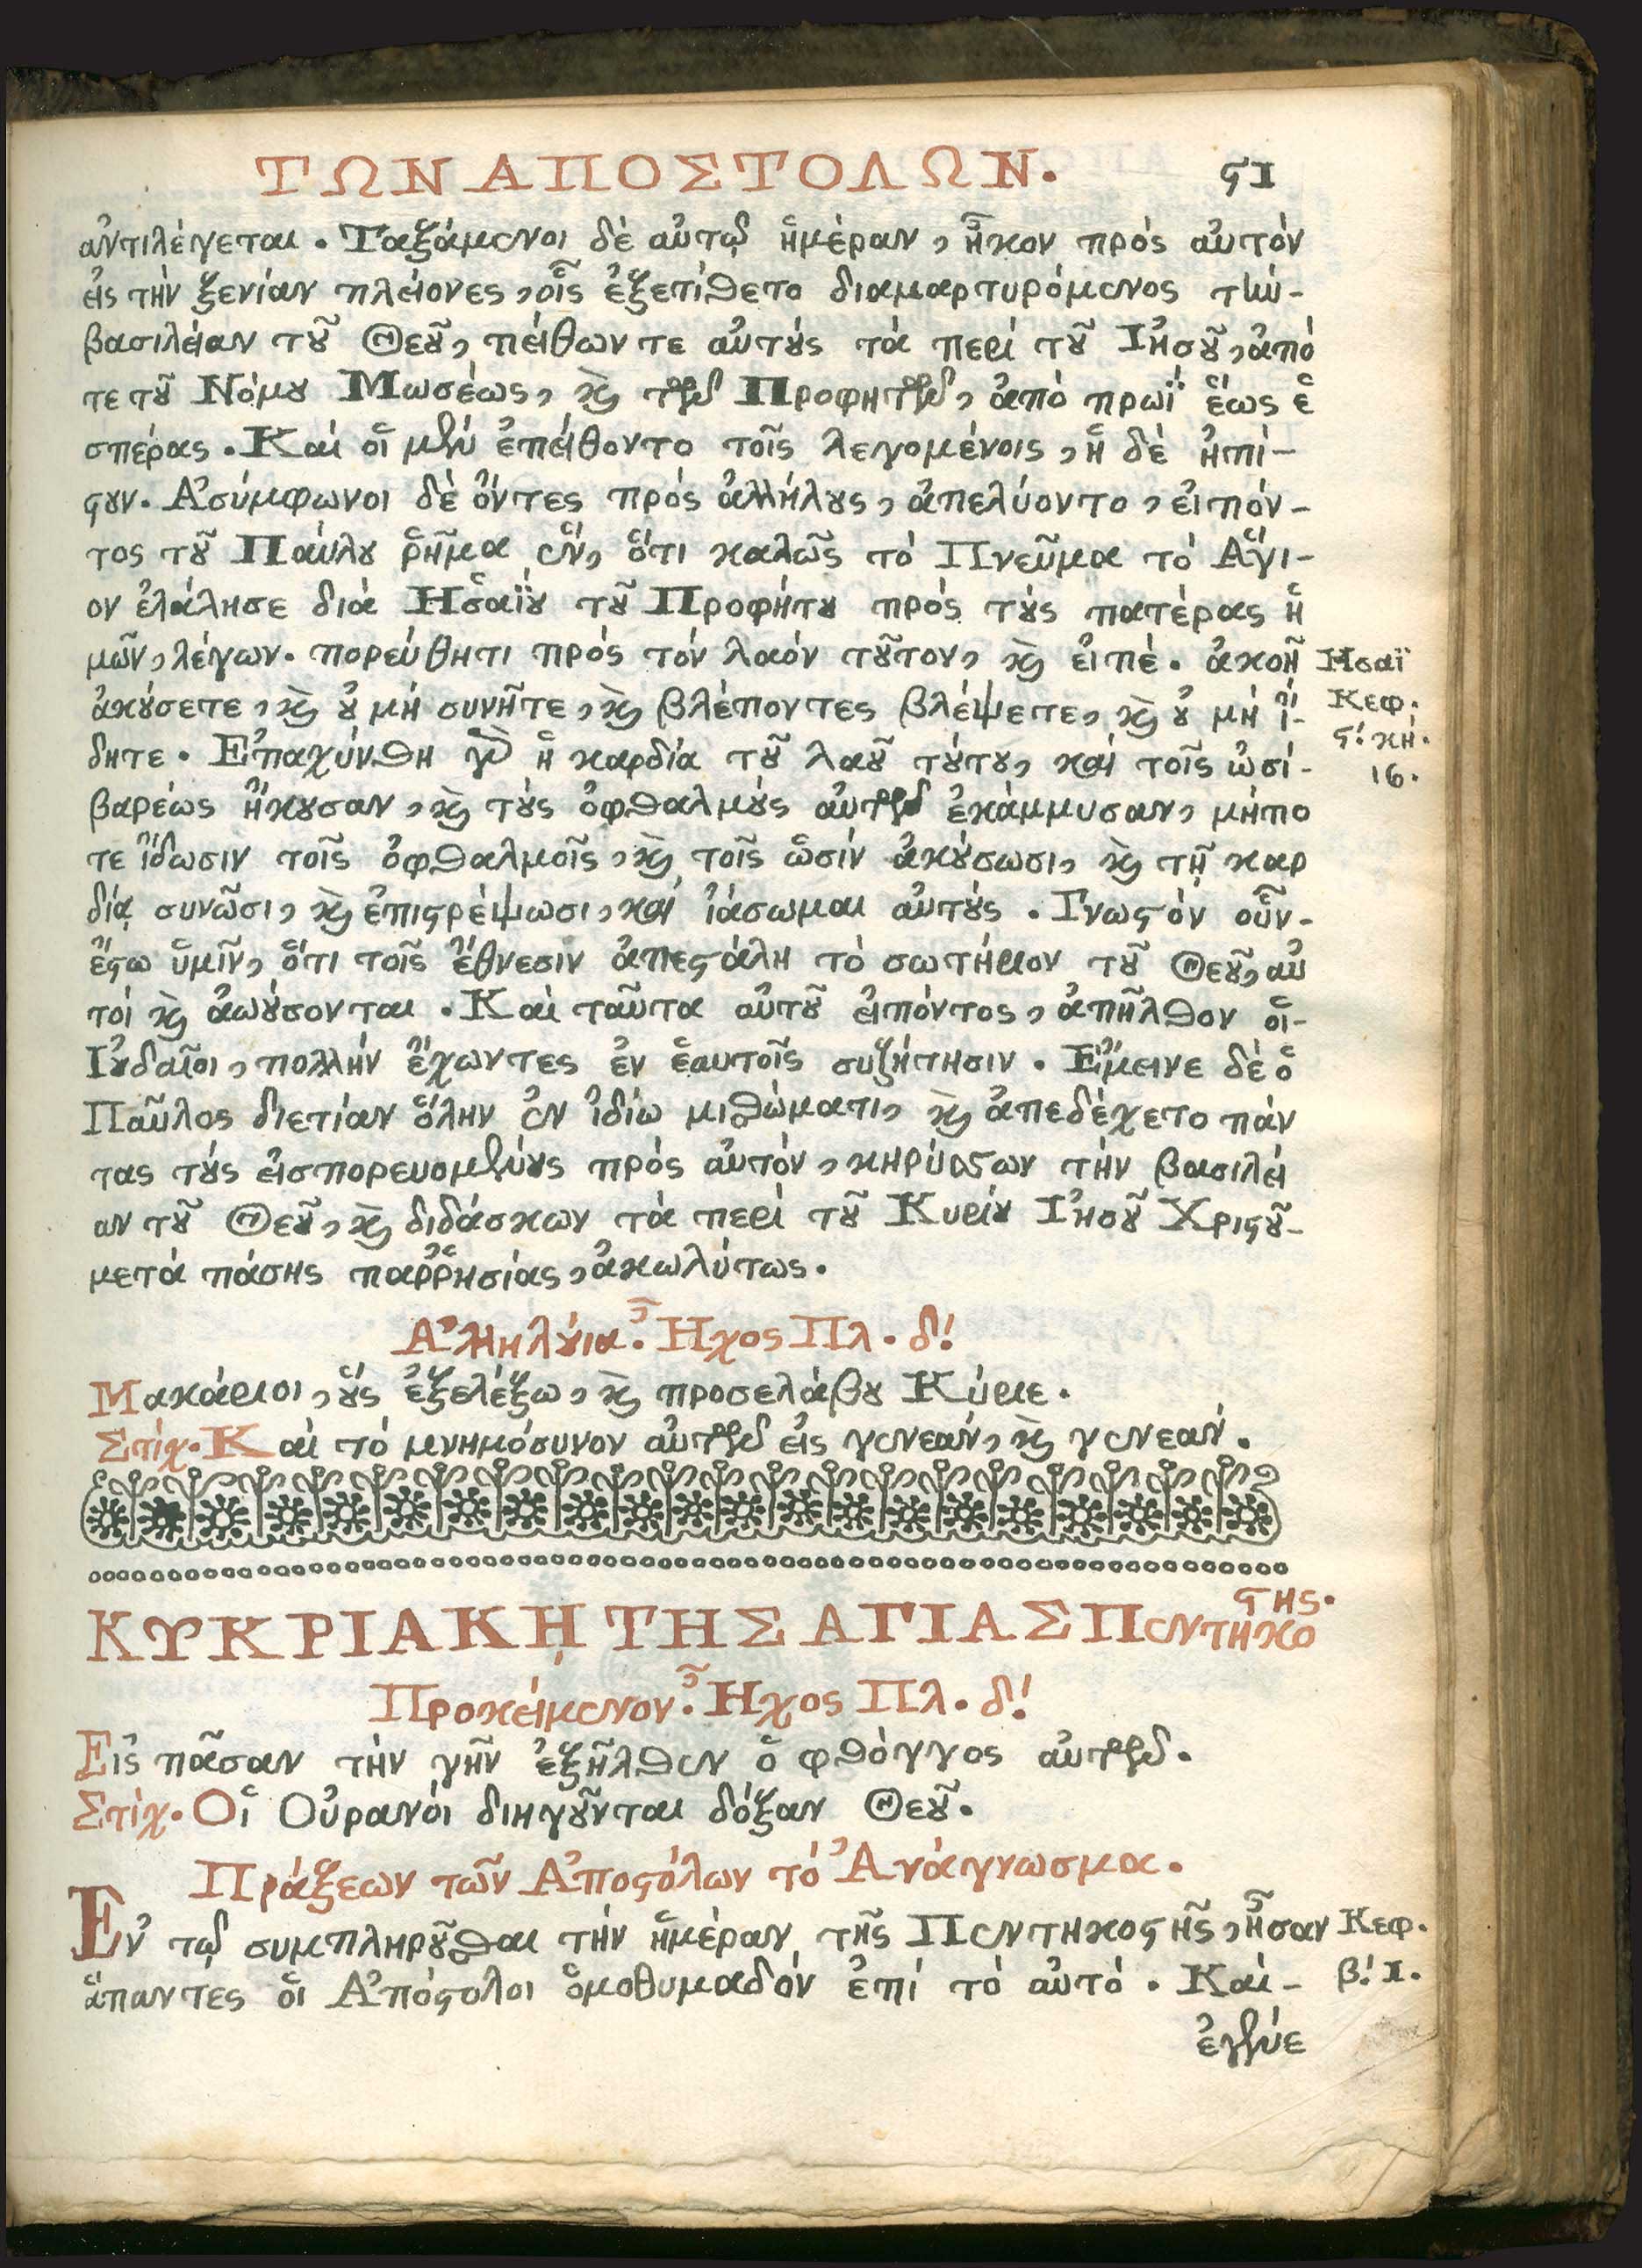 ΤΩΝ ΑΠΟΣΤΟΛΩΝ. ϛΙ
ἀντιλέγεται. Ταξάμενοι δὲ αὐτῷ ἡμέραν, ἧκον πρὸς αὐτόν
εἰς τὴν ξενίαν πλείονες, οἷς ἐξετίθετο διαμαρτυρόμενος τὴν-
βασιλείαν τȣ͂ Θεȣ͂, πείθων τε αὐτȣ́ς τά περί τȣ͂ Ἰησȣ͂, ἀπό
τε τȣ͂ Νόμȣ Μωσέως, ϗ τῶν Προφητῶν, ἀπό πρωΐ ἕως ἑ
σπέρας. Καί οἱ μὲν ἐπείθοντο τοῖς λεγομένοις, ἡ δὲ ἠπί-
ϛȣν. Ἀσύμφωνοι δὲ ὄντες πρός ἀλλήλȣς, ἀπελύοντο, εἰπόν-
τος τȣ͂ Παύλȣ ῥῆμα ἕν, ὅτι καλῶς τό Πνεῦμα τό Ἅγι-
ον ἐλάλησε διά Ησαΐȣ τȣ͂ Προφήτȣ πρός τȣ́ς πατέρας ἡ
μῶν, λέγων. πορεύθητι πρός τόν λαόν τȣ͂τον, ϗ εἰπέ. ἀκοῇ Ησαΐ
ἀκȣ́σετε, ϗ ȣ̓ μή συνῆτε, ϗ βλέποντες βλέψετε, ϗ ȣ̓ μή ἴ- Κεφ.
δητε. Ἐπαχύνθη γὰρ ἡ καρδία τȣ͂ λαȣ͂ τȣ́τȣ, καί τοῖς ὠσί- ϛ! κή.
βαρέως ἤκȣσαν, ϗ τȣ́ς ὀφθαλμȣ́ς αὐτῶν ἐκάμμυσαν, μήπο 16.
τε ἴδωσιν τοῖς ὀφθαλμοῖς, ϗ τοῖς ὠσίν ἀκȣ́σωσι, ϗ τῇ καρ
δίᾳ συνῶσι, ϗ ἐπιϛρέψωσι, καί ἰάσωμαι αὐτȣ́ς. Γνωϛόν οὖν-
ἔϛω ὑμῖν, ὅτι τοῖς ἔθνεσιν ἀπεϛάλη τό σωτήριον τȣ͂ Θεȣ͂, αὐ
τοί ϗ ἀωȣ́σονται. Καί ταῦτα αὐτȣ͂ εἰπόντος, ἀπῆλθον οἱ-
Ἰȣδαῖοι, πολλήν ἔχωντες ἐν ἑαυτοῖς συζήτησιν. Ἔμεινε δὲ ὁ
Παῦλος διετίαν ὅλην ἐν ἰδίω μιθώματι, ϗ ἀπεδέχετο πάν
τας τȣ́ς εἰσπορευομένȣς πρός αὐτόν, κηρύσσων τήν βασιλεί
αν τȣ͂ Θεȣ͂, ϗ διδάσκων τά περί τȣ͂ Κυρίȣ Ἰησȣ͂ Χριϛȣ͂-
μετά πάσης παῤῥησίας, ἀκωλύτως.
Ἀλληλȣ́ια. Ἦχος Πλ. δ!
Μακάριοι, ȣ̔́ς ἐξελέξω, ϗ προσελάβȣ Κύριε.
Στίχ. Καί τό μνημόσυνον αὐτῶν εἰς γενεάν, ϗ γενεάν.
ΚΥΚΡΙΑΚῌ ΤΗΣ ΑΓΙΑΣ Πεντηκοϛῆς.
Προκείμενον. Ἦχος Πλ. δ!
Εἰς πᾶσαν τήν γῆν ἐξῆλθεν ὁ φθόγγος αὐτῶν.
Στίχ. Οἱ Οὐρανοί διηγȣ͂νται δόξαν Θεȣ͂.
Πράξεων τῶν Ἀποϛόλων τό Ἀνάγνωσμα.
Ἐν τῷ συμπληρȣ͂σθαι τήν ἡμέραν τῆς Πεντηκοϛῆς, ἦσαν Κεφ.
ἅπαντες οἱ Ἀπόϛολοι ὁμοθυμαδόν ἐπί τό αὐτό. Καί- β! Ι.
ἐγένε